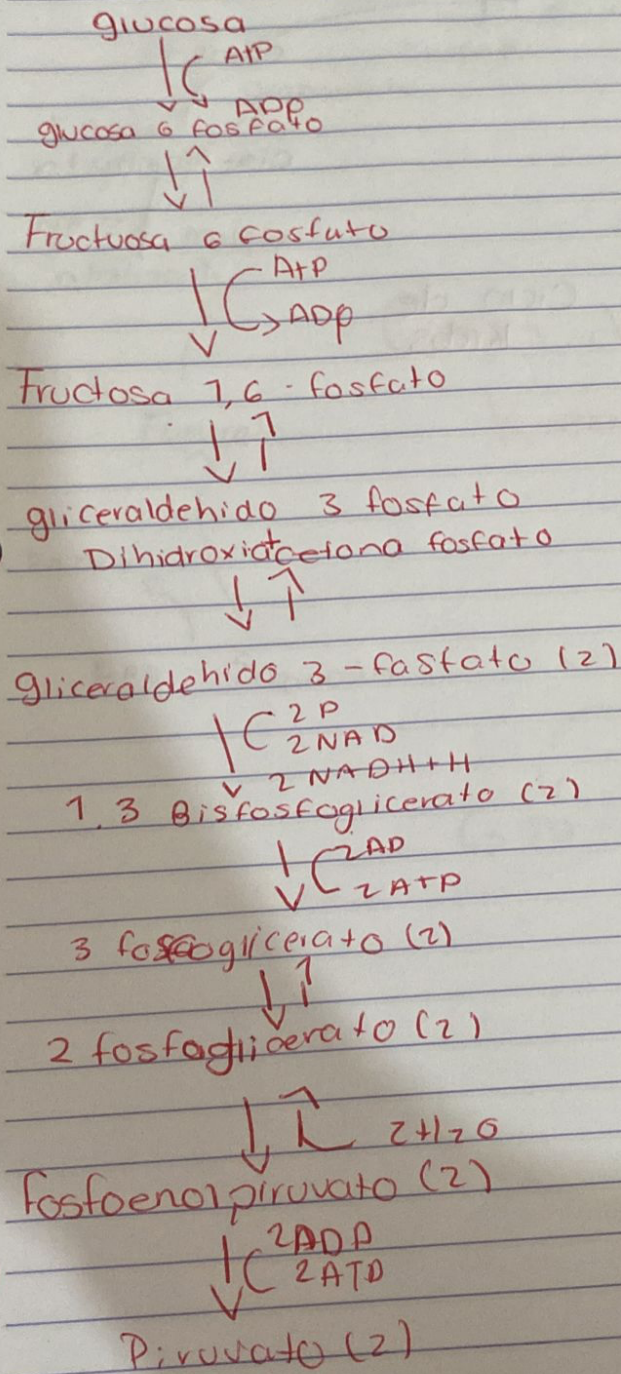 glucosa
ATP
ADP
glucosa 6 fosfato
Fructuosa 6 fosfato
ATP
ADP
Fructosa 1,6 - fosfato
gliceraldehido 3 fosfato
+
Dihidroxiacetona fosfato
gliceraldehido 3 - fasfato (2)
2 P
2 NAD
2 NADH + H
1,3 Bisfosfoglicerato (2)
2AD
2 ATP
3 fosfoglicerato (2)
2 fosfoglicerato (2)
2 H2O
fosfoenolpiruvato (2)
2ADP
2ATP
Piruvato (2)